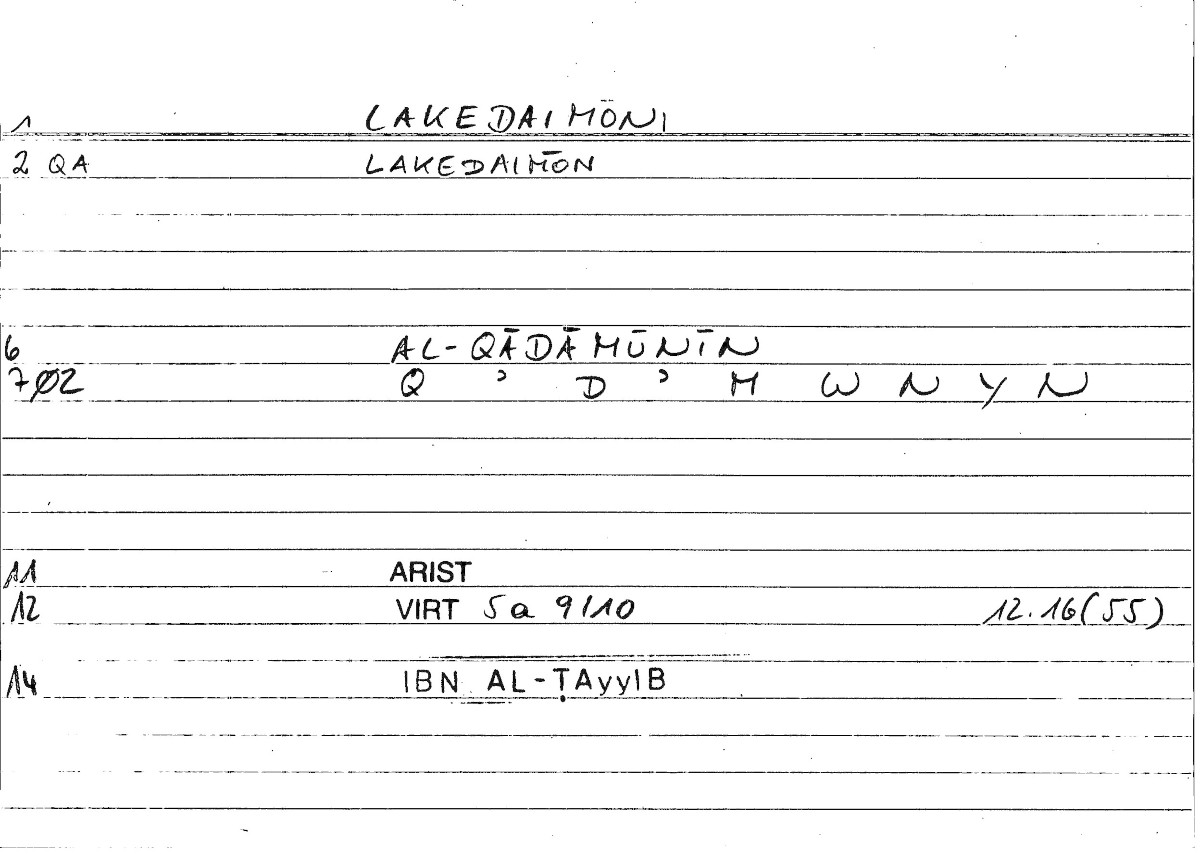 1 LAKEDAIMŌNI
2 QA LAKEDAIMŌN
6 AL-QĀDĀMŪNĪN
7 Ø2 Q ʾ D ʾ M W N Y N
11 ARIST
12 VIRT 5a 9/10 12.16(55)
14 IBN AL-ṬAyyIB